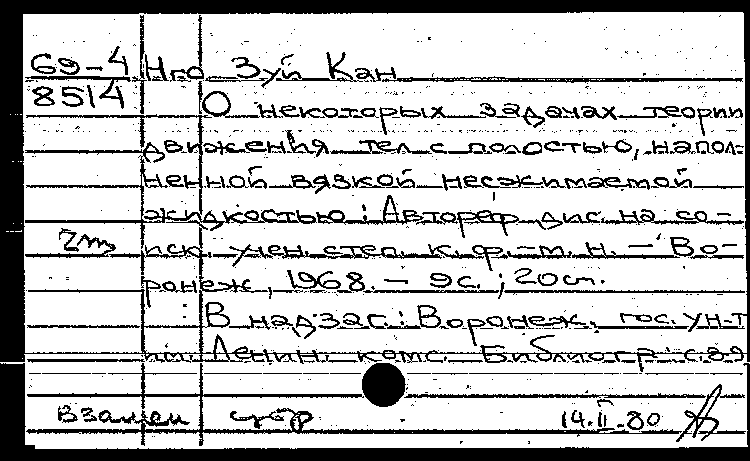 69-4 Нго Зуй Кан
8514 О некоторых задачах теории
движения тел с полостью, напол-
ненной вязкой несжимаемой
жидкостью: Автореф. дис. на со-
2m иск. учен. степ. к. ф.-м. н. — Во-
ронеж, 1968. — 9 с.; 20 см.
В надзаг.: Воронеж. гос. ун-т
им. Ленин. комс. Библиогр.: с. 8-9
взамен
14.II.80